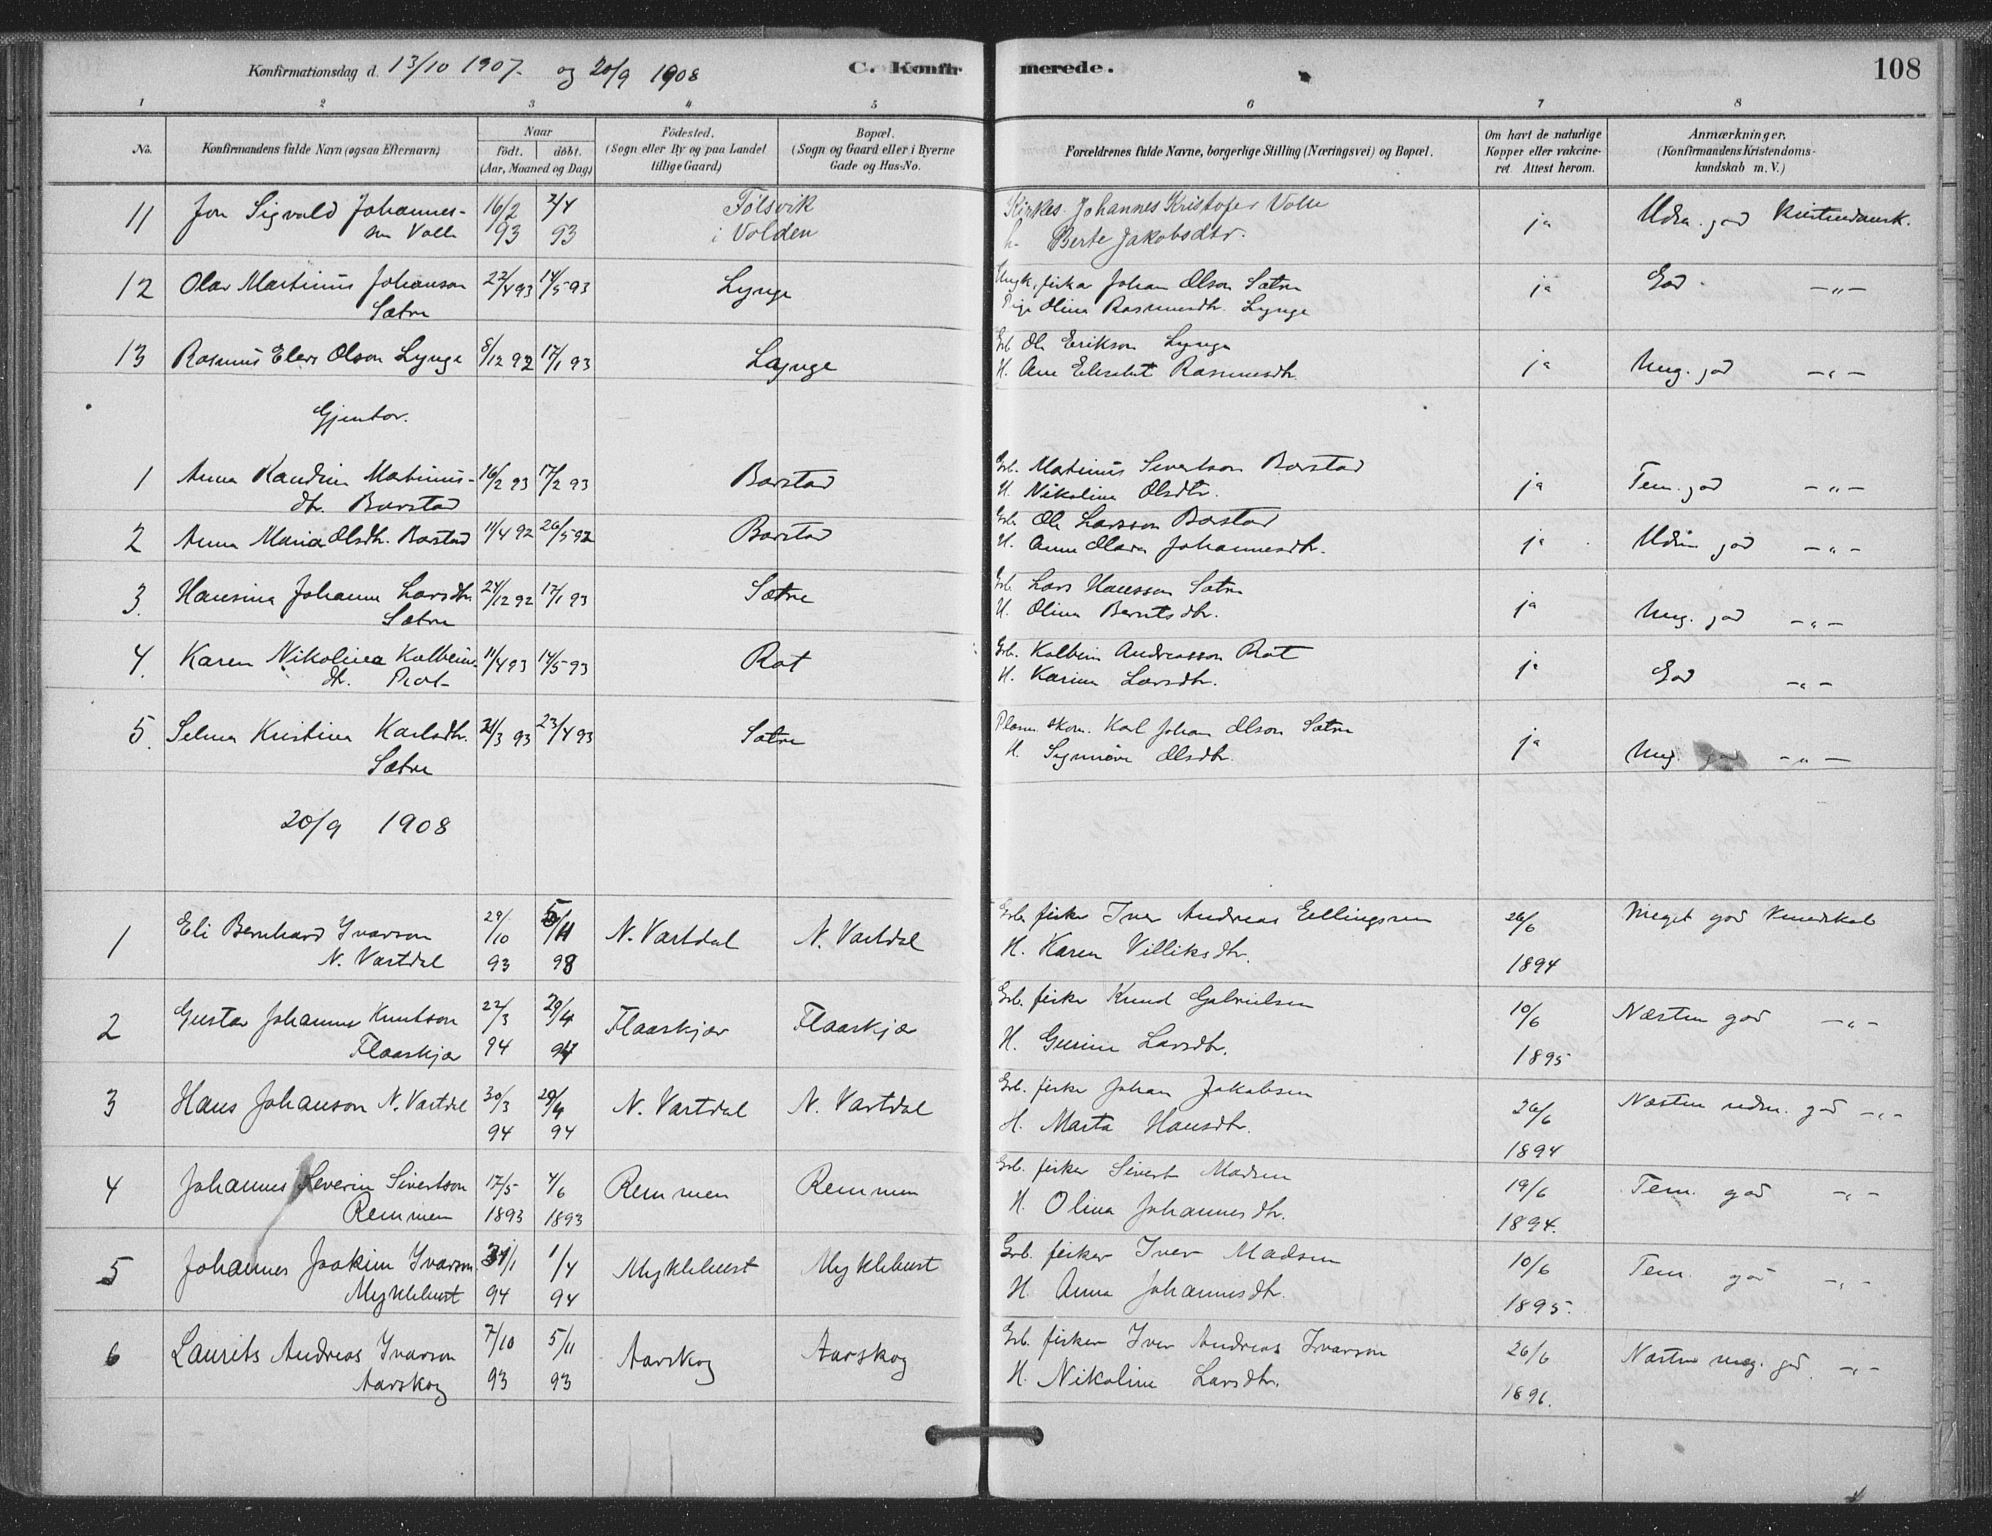 Konfirmationsdag d. 13/10 1907. og 20/9 1908
C. Konfirmerede.
108
1 2 3 4 5 6 7 8
No.
Konfirmandens fulde Navn (ogsaa Efternavn)
Naar
födt. döbt.
(Aar, Maaned og Dag)
Födested.
(Sogn eller By og paa Landet
tillige Gaard)
Bopæl.
(Sogn og Gaard eller i Byerne
Gade og Hus-No.
Forældrenes fulde Navne, borgerlige Stilling (Næringsvei) og Bopæl.
Om havt de naturlige
Kopper eller vakcine-
ret. Attest herom.
Anmærkninger.
(Konfirmandens Kristendoms-
kundskab m. V.)
11 Jon Sigvald Johannes- 16/2 2/4 Fölsvik Kirkes. Johannes Kristofer Volle ja Udm. god Kristendomsk.
sen Volle 93 93 i Volden h. Berte Jakobsdtr.
12 Olav Martinius Johanson 22/4 93 14/5 93 Lynge Ungk. fisker Johan Olson Sætre ja God -"-
Sætre Pige Olina Rasmusdtr. Lynge
13 Rasmus Elers Olson Lynge 8/12 92 17/1 93 Lynge Grb. Ole Erikson Lynge ja Meg. god -"-
H. Ane Elisebet Rasmusdtr.
Gjentor.
1 Anna Kandin Martinus- 16/2 93 17/2 93 Barstad Grb. Martinus Sivertson Barstad ja Tem. god -"-
dtr. Barstad H. Nikolina Olsdtr.
2 Anna Maria Olsdtr. Barstad 11/4 92 26/5 92 Barstad Grb. Ole Larsson Barstad ja Udm. god -"-
H. Anne Olava Johannesdtr.
3. Hansina Johanna Larsdtr. 24/12 92 17/1 93 Sætre Grb. Lars Hansson Sætre ja Meg. god -"-
Sætre H. Olina Berntsdtr.
4. Karen Nikolinea Kolbeins- 11/4 93 14/5 93 Rot Grb. Kolbein Andreasson Rot ja God -"-
dtr. Rot H. Karina Larsdtr.
5. Selma Kristina Karlsdtr. 21/3 93 23/4 93 Sætre Karl Johan Olson Sætre ja Meg. god -"-
Sætre H. Synnöve Olsdtr.
20/9 1908
1 Eli Bernhard Ivarson 29/10 5/11 N. Vartdal N. Vartdal Grb. fisker Iver Andreas Ellingsen 26/6 Meget god Kundskab
N. Vartdal 93 93 H. Karen Villiksdtr. 1894
2 Gustav Johannes Knutson 22/3 29/4 Flaaskjær Flaaskjær Grb. fisker Knud Gabrielsen 10/6 Næsten god -"-
Flaaskjær 94 94 H. Gurine Larsdtr. 1895
3 Hans Johanson N. Vartdal 30/3 29/4 N. Vartdal N. Vartdal Grb. fisker Johan Jakobsen 26/6 Næsten udm. god -"-
94 94 H. Marta Hansdtr. 1894
4 Johannes Severin Sivertson 17/5 4/6 Remmen Remmen Grb. fisker Sivert Madsen 19/6 Tem. god -"-
Remmen 1893 1893 H. Olina Johannesdtr. 1894.
5 Johannes Joakim Ivarson 31/1 1/4 Myklebust Myklebust Grb. fisker Iver Madsen 10/6 Tem. god -"-
Myklebust 94 94 H. Anna Johannesdtr. 1895.
6 Laurits Andreas Ivarson 7/10 5/11 Aarskog Aarskog Grb. fisker Iver Andreas Ivarson 26/6 Næsten meg. god -"-
Aarskog 93 93 H. Nikoline Larsdtr. 1896.